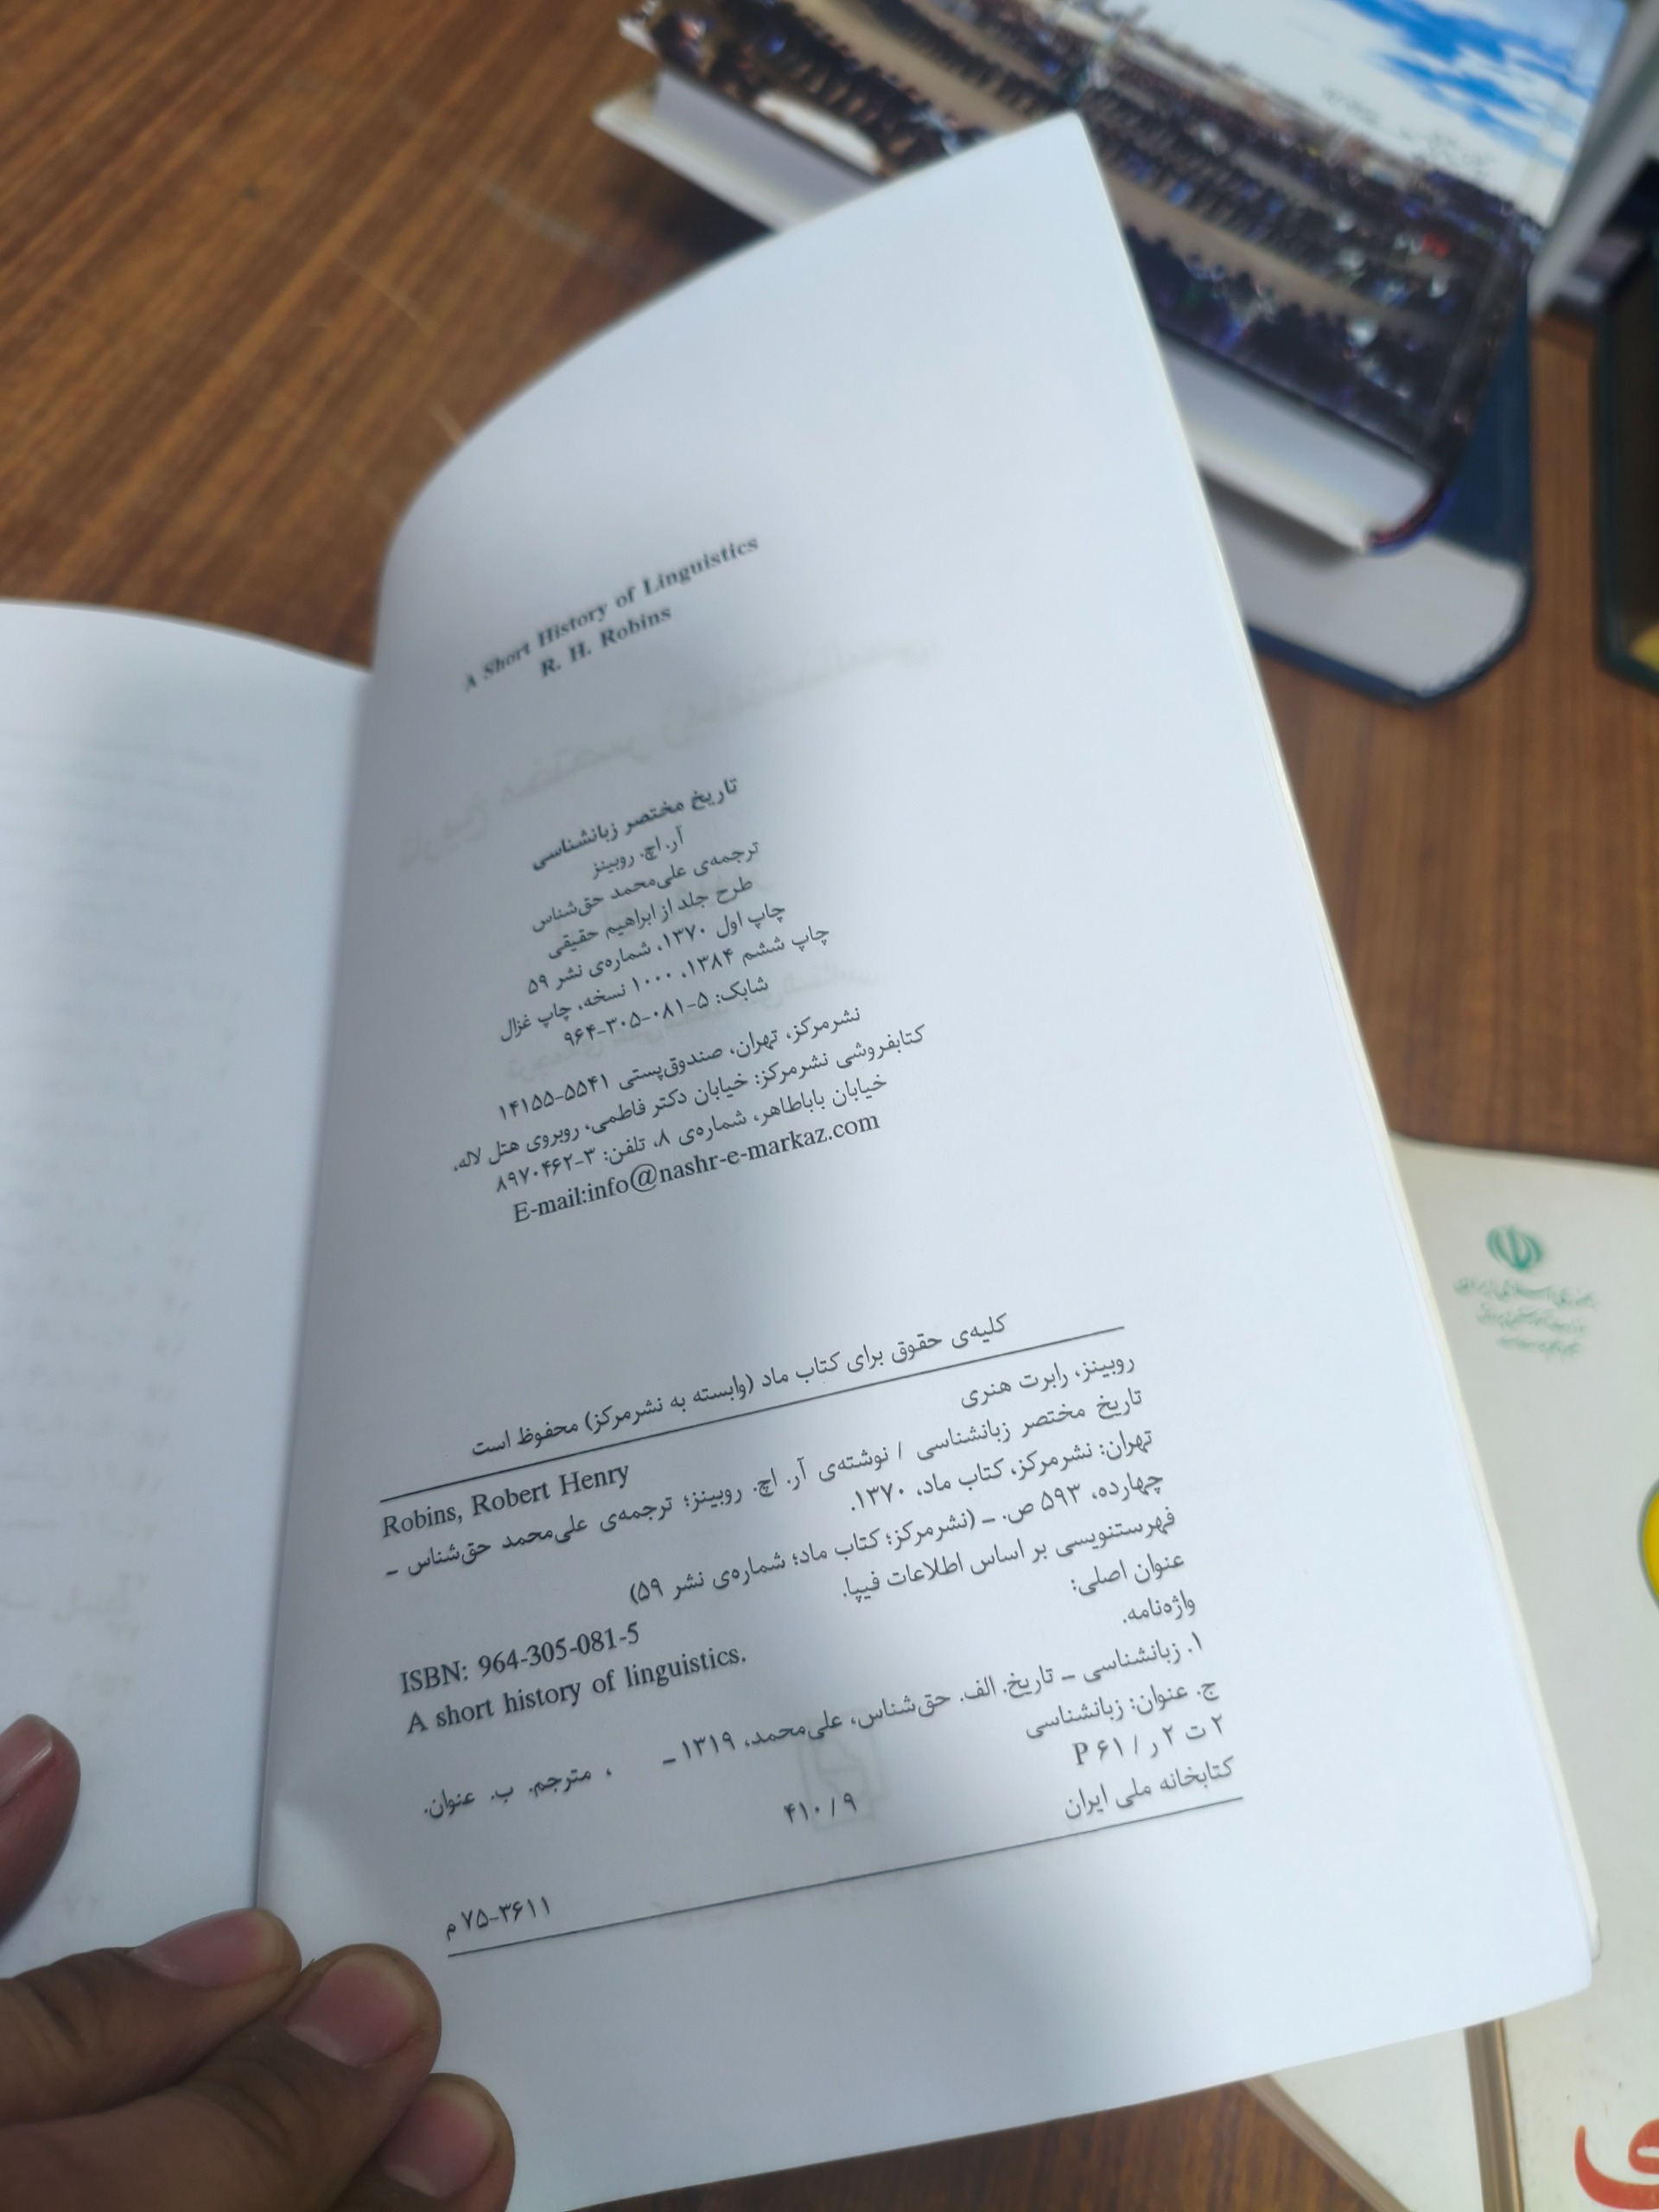 A Short History of Linguistics
R. H. Robins
تاریخ مختصر زبانشناسی
آر. اچ. روبینز
ترجمه‌ی علی‌محمد حق‌شناس
طرح جلد از ابراهیم حقیقی
چاپ اول ۱۳۷۰، شماره‌ی نشر ۵۹
چاپ ششم ۱۳۸۴، ۱۰۰۰ نسخه، چاپ غزال
شابک: ۵-۰۸۱-۳۰۵-۹۶۴
نشرمرکز، تهران، صندوق‌پستی ۵۵۴۱-۱۴۱۵۵
کتابفروشی نشرمرکز: خیابان دکتر فاطمی، روبروی هتل لاله،
خیابان باباطاهر، شماره‌ی ۸، تلفن: ۳-۸۹۷۰۴۶۲
E-mail:info@nashr-e-markaz.com
کلیه‌ی حقوق برای کتاب ماد (وابسته به نشرمرکز) محفوظ است
روبینز، رابرت هنری Robins, Robert Henry
تاریخ مختصر زبانشناسی / نوشته‌ی آر. اچ. روبینز؛ ترجمه‌ی علی‌محمد حق‌شناس ـ
تهران: نشرمرکز، کتاب ماد، ۱۳۷۰.
چهارده، ۵۹۳ ص. ـ (نشرمرکز؛ کتاب ماد؛ شماره‌ی نشر ۵۹)
فهرستنویسی بر اساس اطلاعات فیپا. ISBN: 964-305-081-5
عنوان اصلی: A short history of linguistics.
واژه‌نامه.
۱. زبانشناسی ـ تاریخ. الف. حق‌شناس، علی‌محمد، ۱۳۱۹ ـ ، مترجم. ب. عنوان.
ج. عنوان: زبانشناسی
۲ ت ۲ ر / ۶۱ P ۴۱۰/۹
کتابخانه ملی ایران ۳۶۱۱-۷۵ م